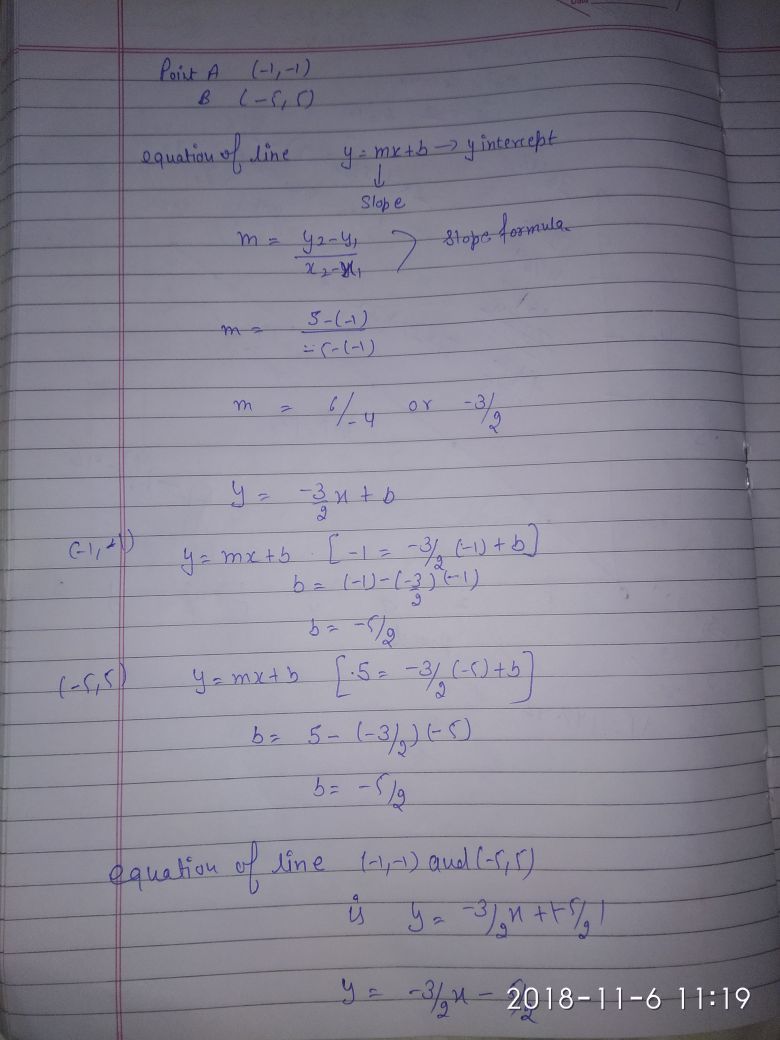 Point A (-1,-1)
B (-5, 5)
equation of line y = mx+b → y intercept
↓
Slope
m = y2-y1 / x2-x1 ) Slope formula
m = 5-(-1) / -5-(-1)
m = 6/-4 or -3/2
y = -3/2 x + b
(-1,-1) y = mx+b [-1 = -3/2 (-1) + b]
b = (-1)-(-3/2)(-1)
b = -5/2
(-5,5) y = mx+b [5 = -3/2 (-5)+b]
b = 5-(-3/2)(-5)
b = -5/2
equation of line (-1,-1) and (-5,5)
is y = -3/2 x + (-5/2)
y = -3/2 x - 5/2
2018-11-6 11:19